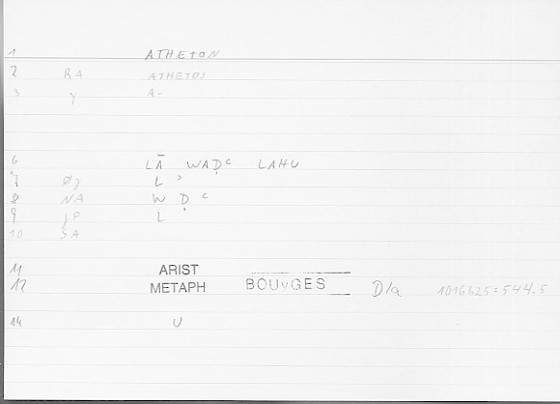 1 ATHETON
2 RA ATHETOS
3 γ A-
6 LĀ WAḌC LAHU
7 Øγ L ɔ
8 NA W Ḍ C
9 γP L
10 SA
11 ARIST
12 METAPH BOUYGES D/a 1016b25=544.5
14 U